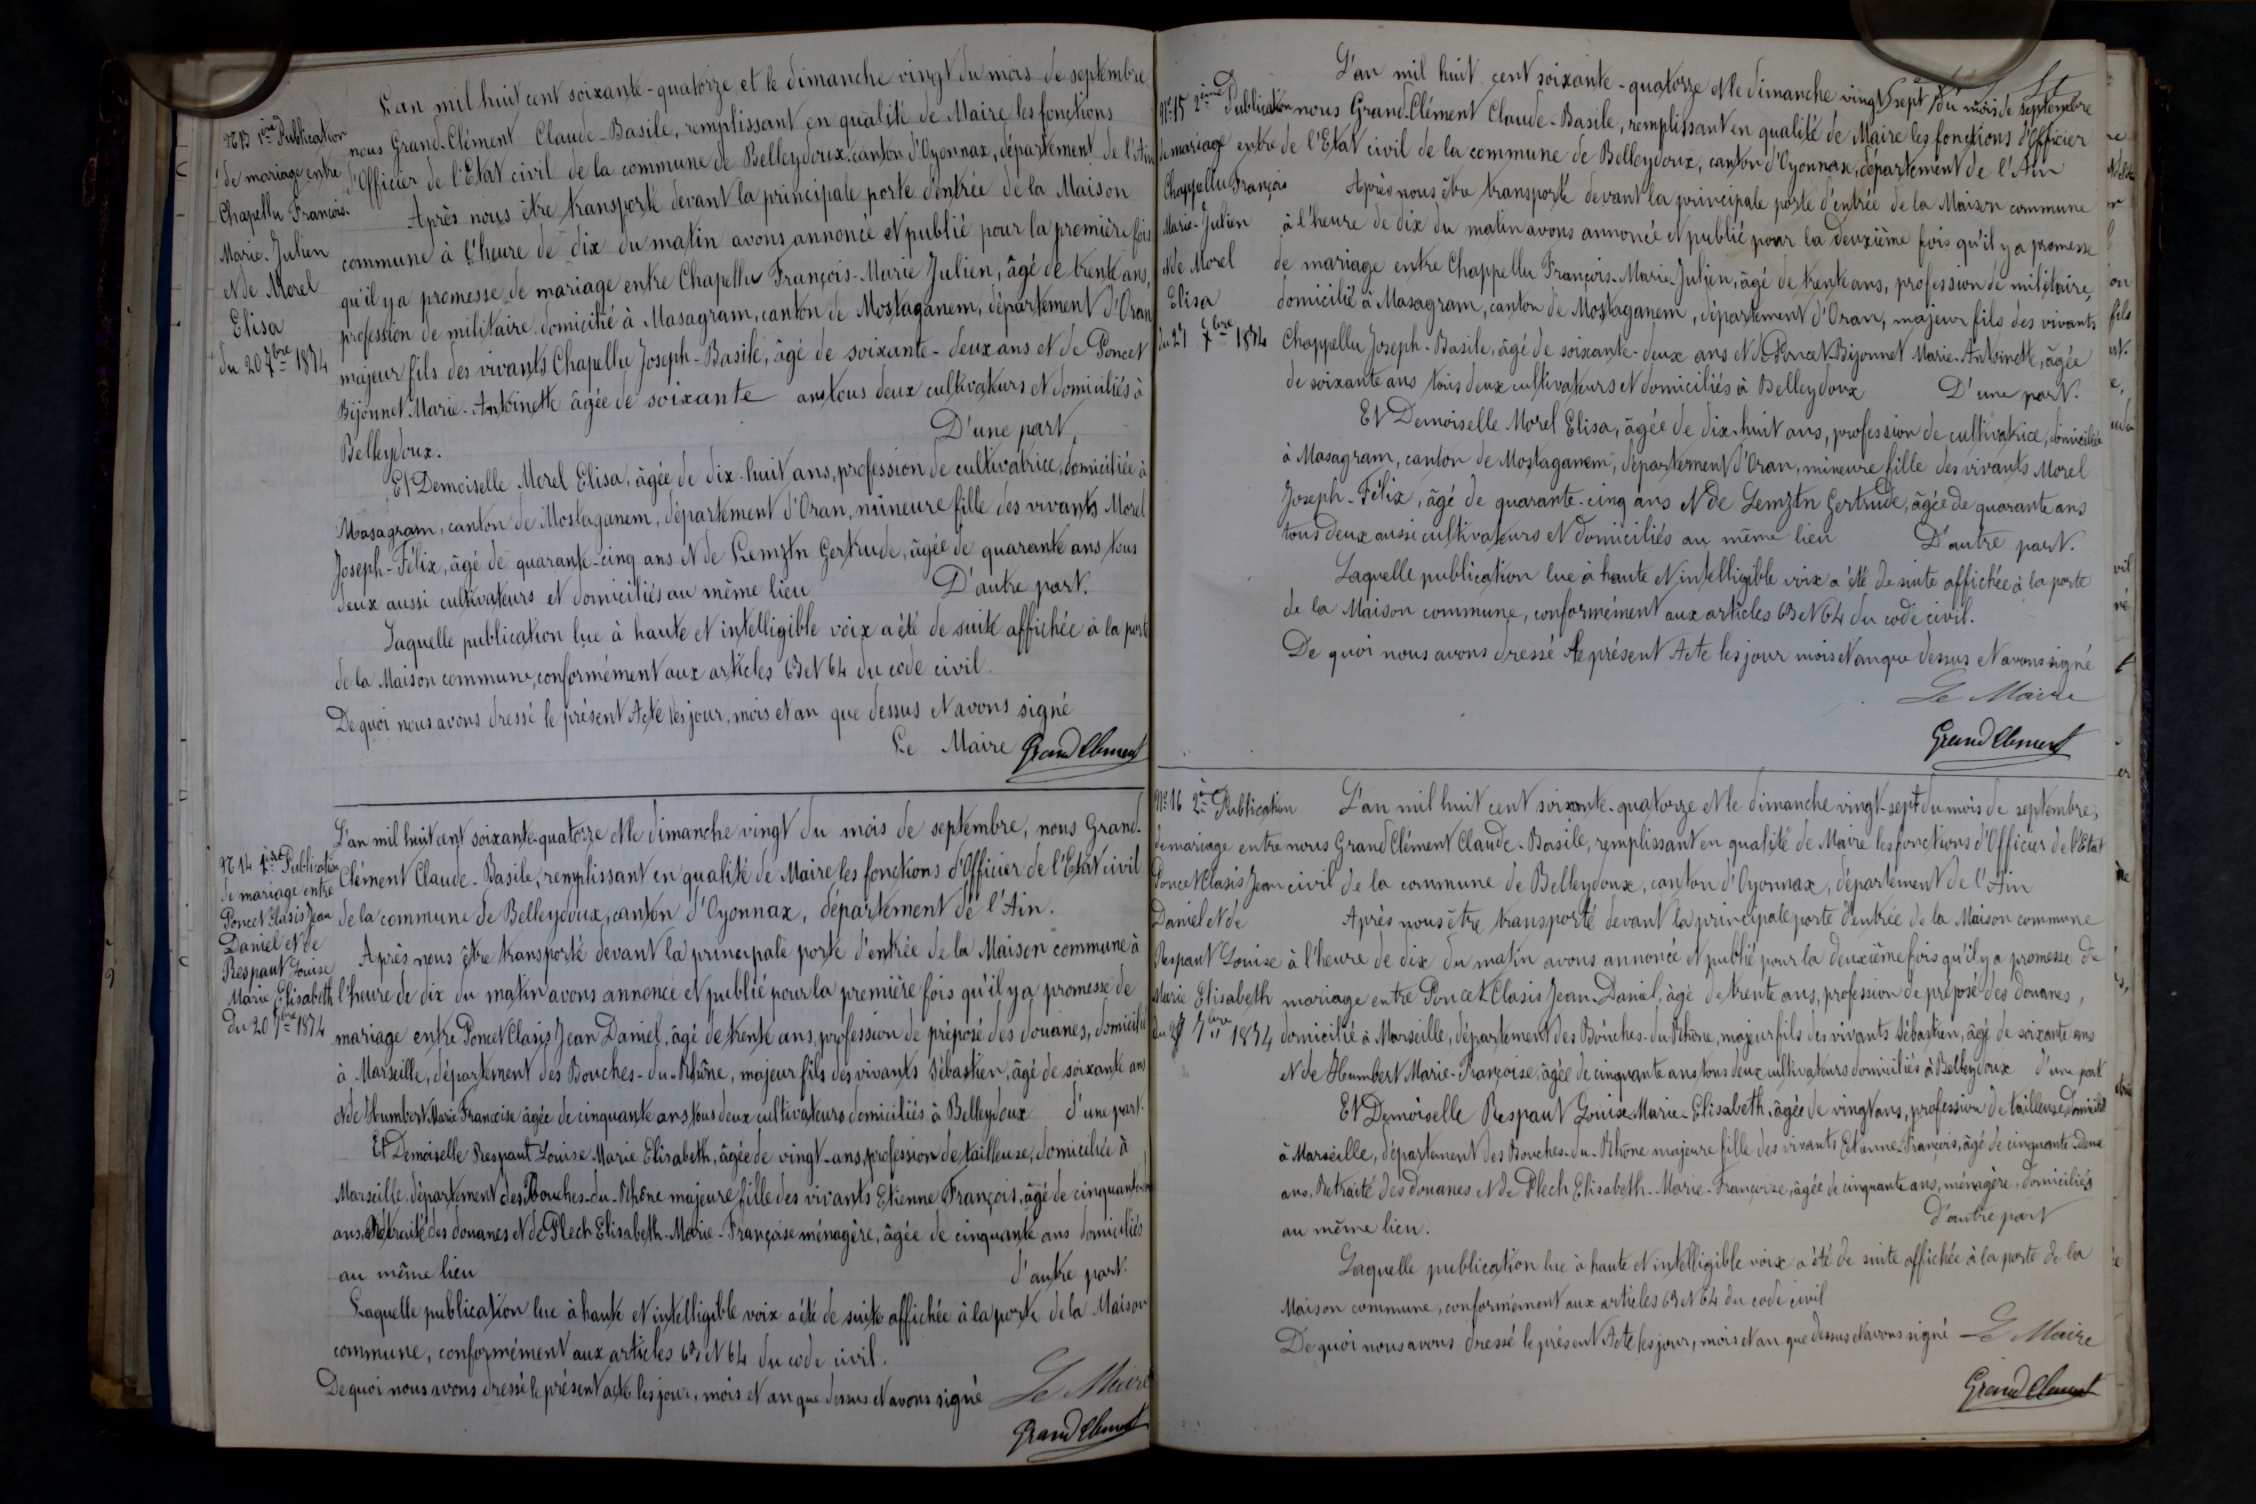 N° 13 1ère Publication
de mariage entre
Chapellu François
Marie-Julien
et de Morel
Elisa
du 20 7bre 1874
L'an mil huit cent soixante-quatorze et le dimanche vingt du mois de septembre
nous Grand-Clément Claude-Basile, remplissant en qualité de Maire les fonctions
d'Officier de l'Etat civil de la commune de Belleydoux, canton d'Oyonnax, département de l'Ain
Après nous être transporté devant la principale porte d'entrée de la Maison
commune à l'heure de dix du matin avons annoncé et publié pour la première fois
qu'il y a promesse de mariage entre Chapellu François-Marie Julien, âgé de trente ans,
profession de militaire domicilié à Masagram, canton de Mostaganem, département d'Oran
majeur fils des vivants Chapellu Joseph-Basile, âgé de soixante-deux ans et de Poncet
Bijonnet Marie-Antoinette âgée de soixante ans tous deux cultivateurs et domiciliés à
Belleydoux. D'une part,
Et Demoiselle Morel Elisa, âgée de dix-huit ans, profession de cultivatrice, domiciliée à
Masagram, canton de Mostaganem, département d'Oran, mineure fille des vivants Morel
Joseph-Félix, âgé de quarante-cinq ans et de Lemztn Gertrude, âgée de quarante ans, tous
deux aussi cultivateurs et domiciliés au même lieu D'autre part.
Laquelle publication lue à haute et intelligible voix a été de suite affichée à la porte
de la Maison commune, conformément aux articles 63 et 64 du code civil.
De quoi nous avons dressé le présent Acte les jour, mois et an que dessus et avons signé
Le Maire Grandclement
N° 14 1ère Publication
de mariage entre
Poncet Clasis Jean
Daniel et de
Respaut Louise
Marie Elisabeth
du 20 7bre 1874
L'an mil huit cent soixante-quatorze et le dimanche vingt du mois de septembre, nous Grand-
Clément Claude-Basile, remplissant en qualité de Maire les fonctions d'Officier de l'Etat civil
de la commune de Belleydoux, canton d'Oyonnax, département de l'Ain.
Après nous être transporté devant la principale porte d'entrée de la Maison commune à
l'heure de dix du matin avons annoncé et publié pour la première fois qu'il y a promesse de
mariage entre Poncet Clasis Jean Daniel, âgé de trente ans, profession de préposé des douanes, domicilié
à Marseille, département des Bouches-du-Rhône, majeur fils des vivants Sébastien, âgé de soixante ans
et de Humbert Marie Françoise âgée de cinquante ans tous deux cultivateurs domiciliés à Belleydoux d'une part.
Et Demoiselle Respaut Louise Marie Elisabeth, âgée de vingt-ans, profession de tailleuse, domiciliée à
Marseille, département des Bouches-du-Rhône majeure fille des vivants Etienne François, âgé de cinquante-
ans, Retraité des douanes et de Plech Elisabeth-Marie-Françoise ménagère, âgée de cinquante ans domiciliés
au même lieu d'autre part.
Laquelle publication lue à haute et intelligible voix a été de suite affichée à la porte de la Maison
commune, conformément aux articles 63 et 64 du code civil.
De quoi nous avons dressé le présent acte les jour, mois et an que dessus et avons signé Le Maire
Grandclement
N° 15 2ème Publication
de mariage entre
Chappellu François
Marie-Julien
et de Morel
Elisa
du 27 7bre 1874
L'an mil huit cent soixante-quatorze et le dimanche vingt sept du mois de septembre
nous Grand-Clément Claude-Basile, remplissant en qualité de Maire les fonctions d'Officier
de l'Etat civil de la commune de Belleydoux, canton d'Oyonnax, département de l'Ain
Après nous être transporté devant la principale porte d'entrée de la Maison commune
à l'heure de dix du matin avons annoncé et publié pour la deuxième fois qu'il y a promesse
de mariage entre Chappellu François-Marie-Julien, âgé de trente ans, profession de militaire,
domicilié à Masagram, canton de Mostaganem, département d'Oran, majeur fils des vivants
Chappellu Joseph-Basile, âgé de soixante-deux ans et de Poncet-Bijonnet Marie-Antoinette, âgée
de soixante ans tous deux cultivateurs et domiciliés à Belleydoux D'une part.
Et Demoiselle Morel Elisa, âgée de dix-huit ans, profession de cultivatrice, domiciliée
à Masagram, canton de Mostaganem, département d'Oran, mineure fille des vivants Morel
Joseph-Félix, âgé de quarante-cinq ans et de Lemztn Gertrude, âgée de quarante ans
tous deux aussi cultivateurs et domiciliés au même lieu D'autre part.
Laquelle publication lue à haute et intelligible voix a été de suite affichée à la porte
de la Maison commune, conformément aux articles 63 et 64 du code civil.
De quoi nous avons dressé le présent Acte les jour mois et an que dessus et avons signé
Le Maire
Grandclement
N° 16 2e Publication
de mariage entre
Poncet Clasis Jean
Daniel et de
Respaut Louise
Marie Elisabeth
du 27 7bre 1874
L'an mil huit cent soixante-quatorze et le dimanche vingt-sept du mois de septembre,
nous Grand Clément Claude-Basile, remplissant en qualité de Maire les fonctions d'Officier de l'Etat
civil de la commune de Belleydoux, canton d'Oyonnax, département de l'Ain
Après nous être transporté devant la principale porte d'entrée de la Maison commune
à l'heure de dix du matin avons annoncé et publié pour la deuxième fois qu'il y a promesse de
mariage entre Poncet Clasis Jean-Daniel, âgé de trente ans, profession de préposé des douanes,
domicilié à Marseille, département des Bouches-du-Rhône, majeur fils des vivants Sébastien, âgé de soixante ans
et de Humbert Marie-Françoise, âgée de cinquante ans tous deux cultivateurs domiciliés à Belleydoux d'une part
Et Demoiselle Respaut Louise-Marie-Elisabeth, âgée de vingt ans, profession de tailleuse, domiciliée
à Marseille, département des Bouches-du-Rhône majeure fille des vivants Etienne-François, âgé de cinquante-deux
ans, Retraité des douanes et de Plech Elisabeth-Marie-Françoise, âgée de cinquante ans, ménagère, domiciliés
au même lieu. d'autre part
Laquelle publication lue à haute et intelligible voix a été de suite affichée à la porte de la
Maison commune, conformément aux articles 63 et 64 du code civil
De quoi nous avons dressé le présent Acte les jour, mois et an que dessus et avons signé Le Maire
Grandclement